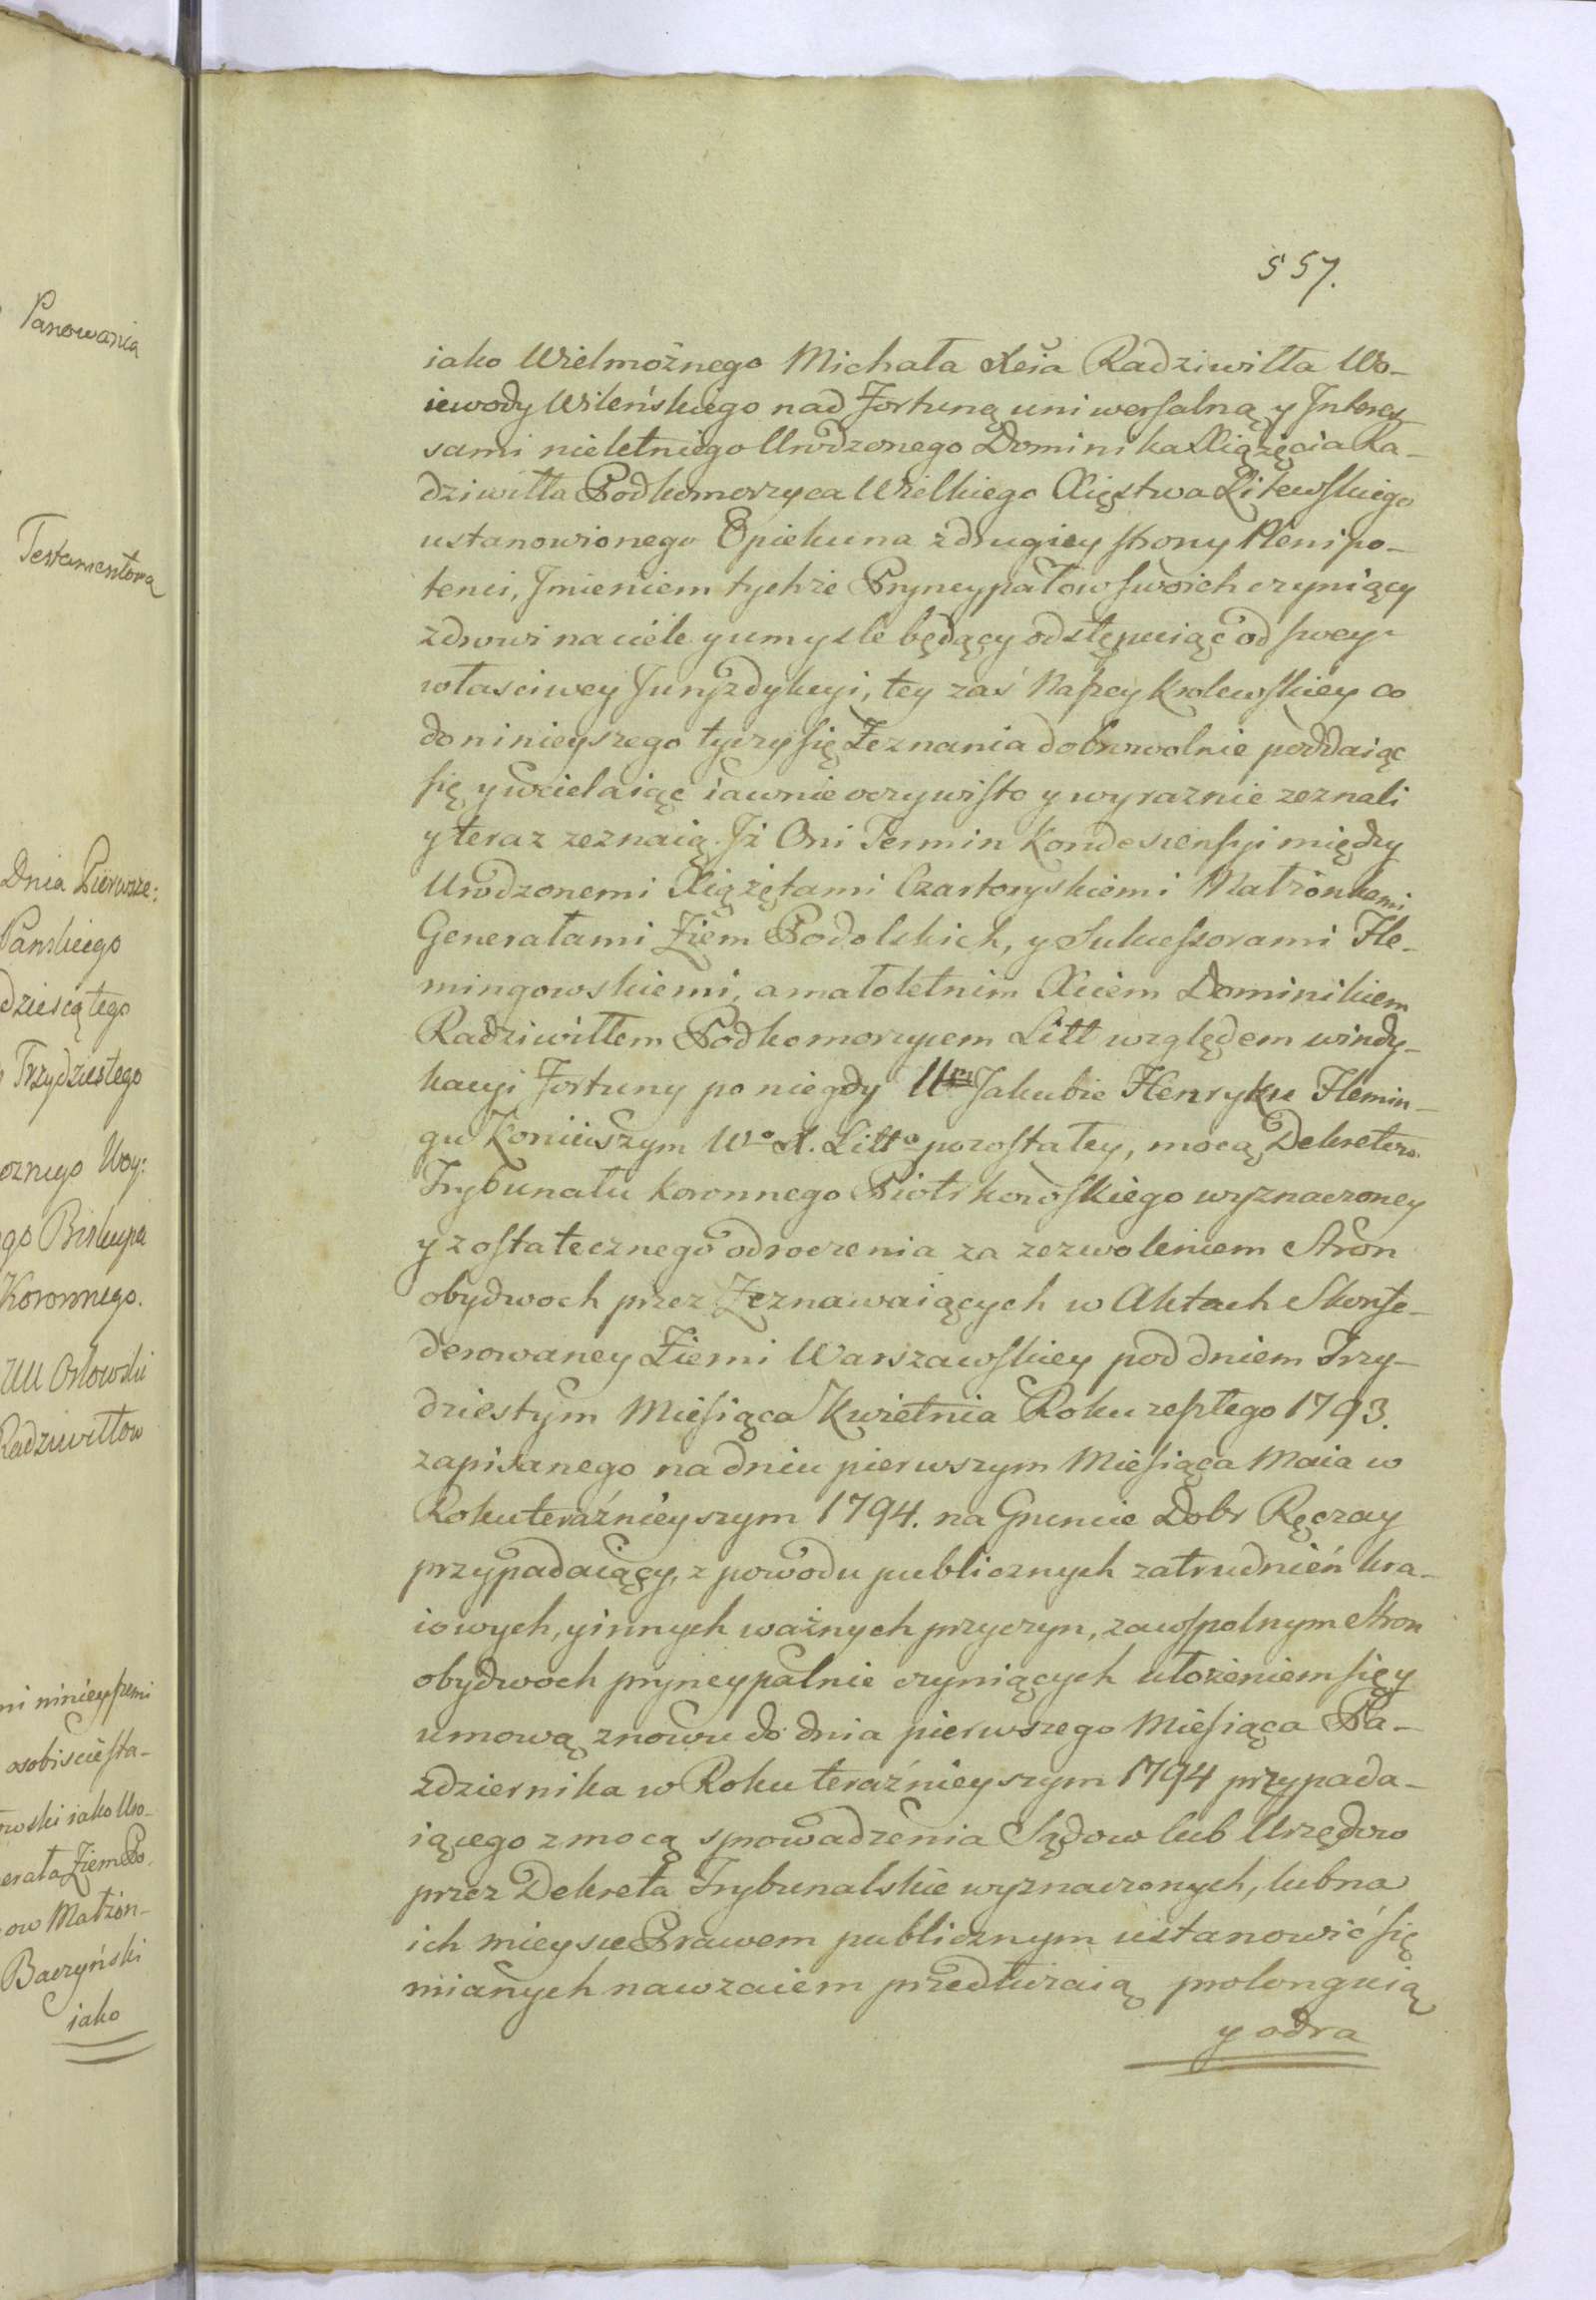 Panowania
Testamentowa
Dnia Pierwsze:
Panskiego
dziesiątego
Trzydziestego
Woy:
go Biskupa
Koronnego.
UU Orłowski
Radziwiłłow
ni ninieyszemi
osobiscie sta-
owski iako Uro-
erała Ziem Po.
ow Małżon-
Baczyński
iako
557.
iako Wielmożnego Michała Xcia Radziwiłła Wo-
iewody Wileńskiego nad Fortuną uniwersalną y Interes-
sami nieletniego Urodzonego Dominika Xiążęcia Ra-
dziwiłła Podkomorzyca Wielkiego Xięstwa Litewskiego
ustanowionego Opiekuna z drugiey strony Plenipo-
tenci, Jmieniem tychże Pryncypałow swoich czyniący
zdrowi na ciele y umysle będący odstępuiąc od swey
własciwey Juryzdykcyi, tey zaś Naszey Krolewskiey co
do ninieyszego tyczy się Zeznania dobrowolnie poddaiąc
się y wcielaiąc iawnie oczywisto y wyraznie zeznali
y teraz zeznaią. Jż Oni Termin Kondescensyi między
Urodzonemi Xiążętami Czartoryskiemi Małżonkami
Generałami Ziem Podolskich, y Sukcessorami Fle-
mingowskiemi, a małoletnim Xciem Dominikiem
Radziwiłłem Podkomorzycem Litt względem windy-
kacyi Fortuny po niegdy Ur Jakubie Henryku Flemin-
gu Koniuszym Wo X. Litto pozostałey, mocą Dekretow
Trybunału Koronnego Piotrkowskiego wyznaczoney
y z ostatecznego odroczenia za zezwoleniem Stron
obydwoch przez Zeznawaiących w Aktach Skonfe-
derowaney Ziemi Warszawskiey pod dniem Trzy-
dziestym Miesiąca Kwietnia Roku zeszłego 1793.
zapisanego na dniu pierwszym Miesiąca Maia w
Roku teraźnieyszym 1794. na Gruncie Dobr Ręczay
przypadaiący, z powodu publicznych zatrudnień kra-
iowych, y innych ważnych przyczyn, za wspolnym Stron
obydwoch pryncypalnie czyniących ułożeniem się y
umową znowu do dnia pierwszego Miesiąca Pa-
zdziernika w Roku teraźnieyszym 1794 przypada-
iącego z mocą sprowadzenia Sądow lub Urzędow
przez Dekreta Trybunalskie wyznaczonych, lub na
ich mieysce Prawem publicznym ustanowić się
mianych nawzaiem przedłużaią prolonguią
y odra